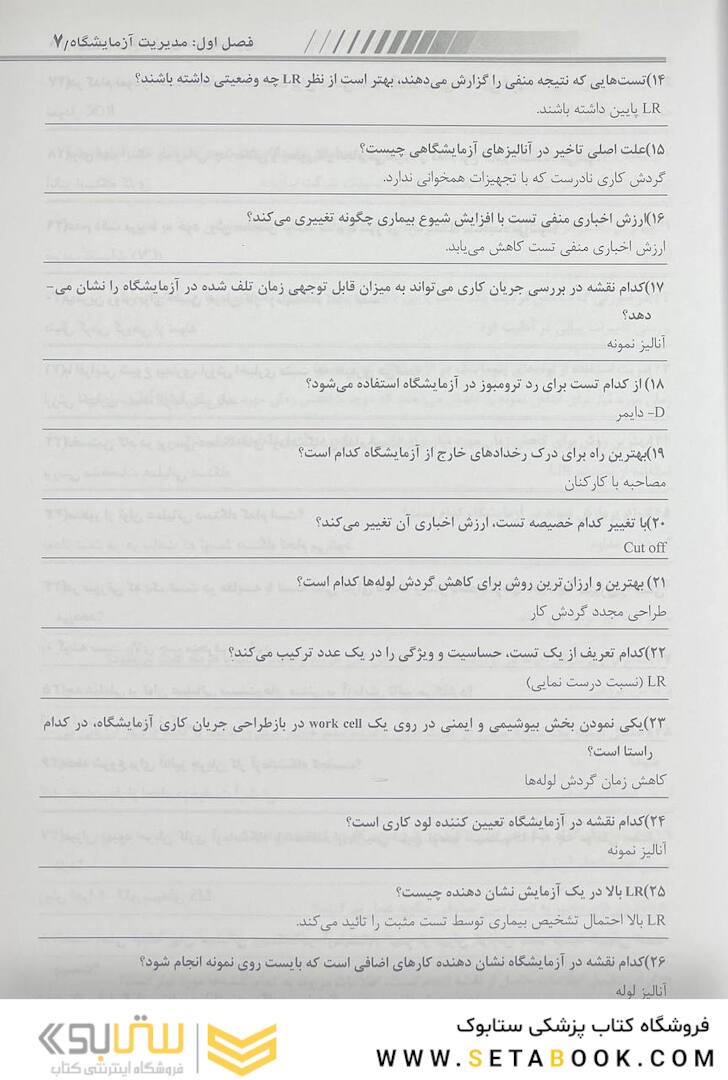 فصل اول: مدیریت آزمایشگاه/۷
۱۴)تست‌هایی که نتیجه منفی را گزارش می‌دهند، بهتر است از نظر LR چه وضعیتی داشته باشند؟
LR پایین داشته باشند.
۱۵)علت اصلی تاخیر در آنالیزهای آزمایشگاهی چیست؟
گردش کاری نادرست که با تجهیزات همخوانی ندارد.
۱۶)ارزش اخباری منفی تست با افزایش شیوع بیماری چگونه تغییری می‌کند؟
ارزش اخباری منفی تست کاهش می‌یابد.
۱۷)کدام نقشه در بررسی جریان کاری می‌تواند به میزان قابل توجهی زمان تلف شده در آزمایشگاه را نشان می-
دهد؟
آنالیز نمونه
۱۸) از کدام تست برای رد ترومبوز در آزمایشگاه استفاده می‌شود؟
D- دایمر
۱۹)بهترین راه برای درک رخدادهای خارج از آزمایشگاه کدام است؟
مصاحبه با کارکنان
۲۰)با تغییر کدام خصیصه تست، ارزش اخباری آن تغییر می‌کند؟
Cut off
۲۱) بهترین و ارزان‌ترین روش برای کاهش گردش لوله‌ها کدام است؟
طراحی مجدد گردش کار
۲۲)کدام تعریف از یک تست، حساسیت و ویژگی را در یک عدد ترکیب می‌کند؟
LR (نسبت درست نمایی)
۲۳)یکی نمودن بخش بیوشیمی و ایمنی در روی یک work cell در بازطراحی جریان کاری آزمایشگاه، در کدام
راستا است؟
کاهش زمان گردش لوله‌ها
۲۴)کدام نقشه در آزمایشگاه تعیین کننده لود کاری است؟
آنالیز نمونه
۲۵)LR بالا در یک آزمایش نشان دهنده چیست؟
LR بالا احتمال تشخیص بیماری توسط تست مثبت را تائید می‌کند.
۲۶)کدام نقشه در آزمایشگاه نشان دهنده کارهای اضافی است که بایست روی نمونه انجام شود؟
آنالیز لوله
فروشگاه کتاب پزشکی ستابوک
WWW.SETABOOK.COM
ستابوک
فروشگاه اینترنتی کتاب